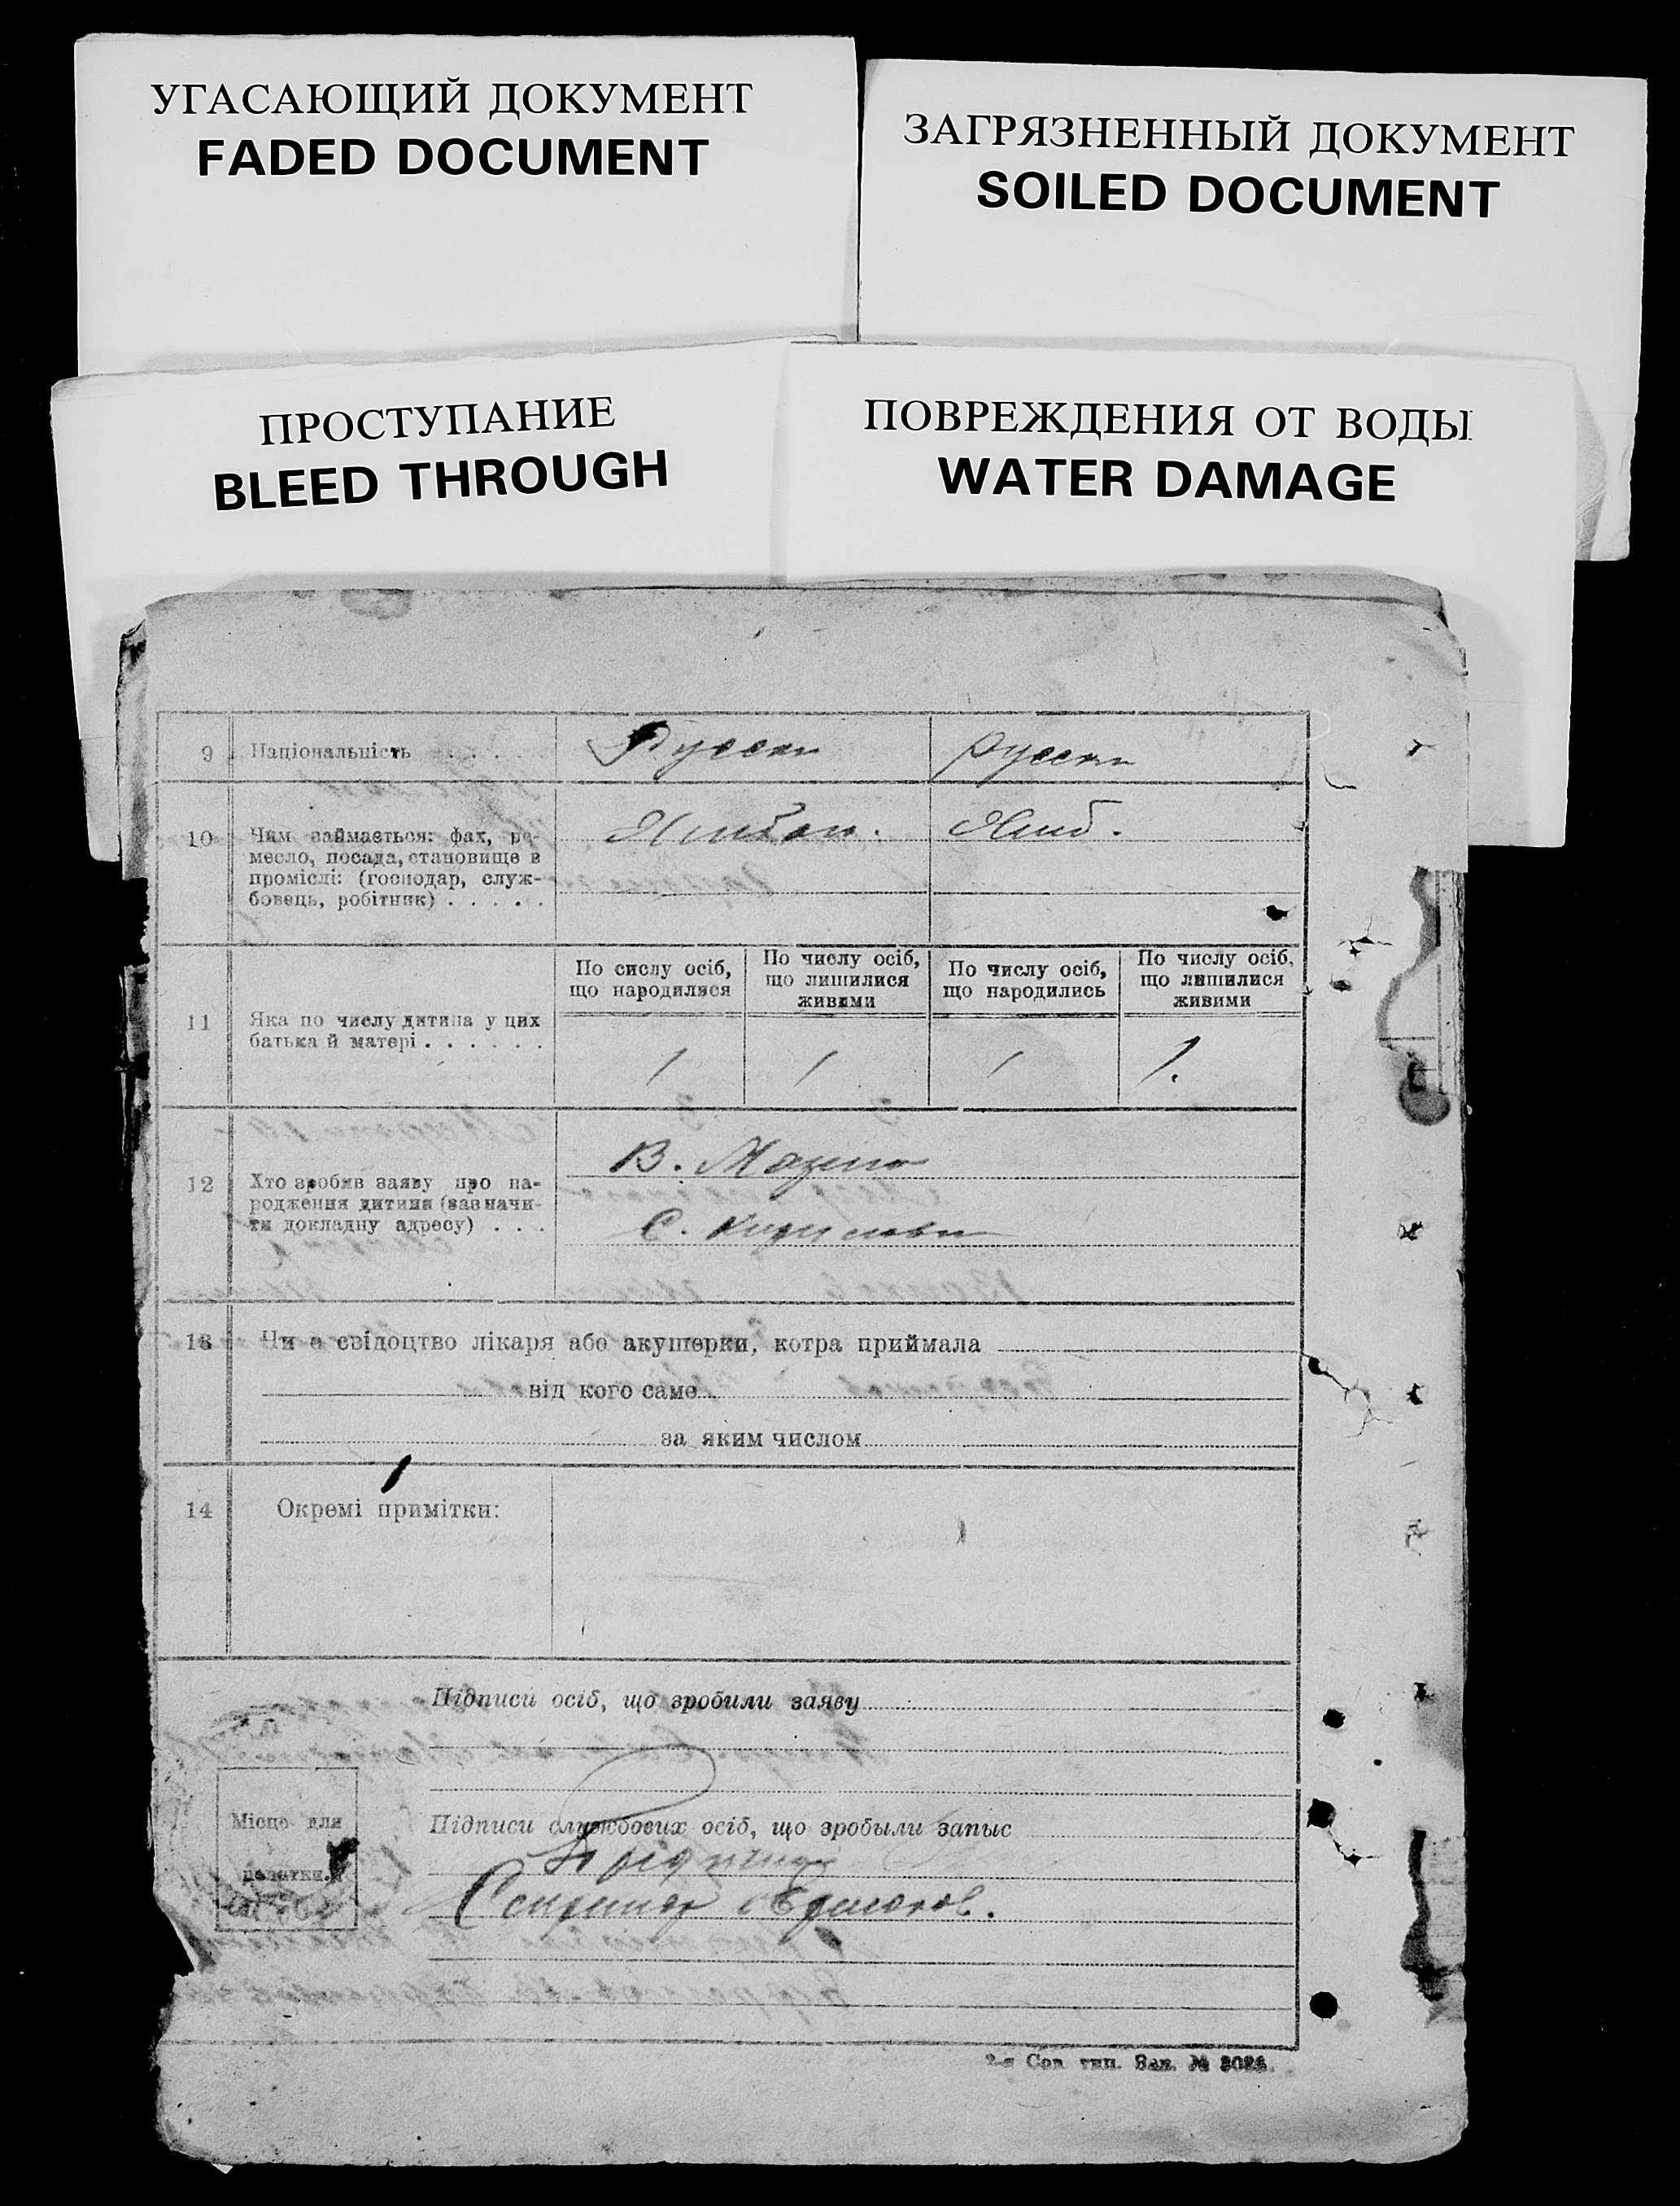 УГАСАЮЩИЙ ДОКУМЕНТ
FADED DOCUMENT
ЗАГРЯЗНЕННЫЙ ДОКУМЕНТ
SOILED DOCUMENT
ПРОСТУПАНИЕ
BLEED THROUGH
ПОВРЕЖДЕНИЯ ОТ ВОДЫ
WATER DAMAGE
9 Національність . . . . . Русски Русски
10 Чим займається: фах, ре-
месло, посада, становище в
промислі: (господар, служ-
бовець, робітник) . . . . .
По сислу осіб,
що народилися
По числу осіб,
що лишилися
живими
По числу осіб,
що народились
По числу осіб,
що лишилися
живими
11 Яка по числу дитина у цих
батька й матері . . . . . .
1 1 1 1.
12 Хто зробив заяву про на-
родження дитини (зазначи-
ти докладну адресу) . . .
В.
С.
13 Чи є свідоцтво лікаря або акушерки, котра приймала
від кого саме
за яким числом
14 Окремі примітки:
Підписи осіб, що зробили заяву
Місце для
печатки.
Підписи службових осіб, що зробыли запыс
2-я Сов. тип. Зак. №